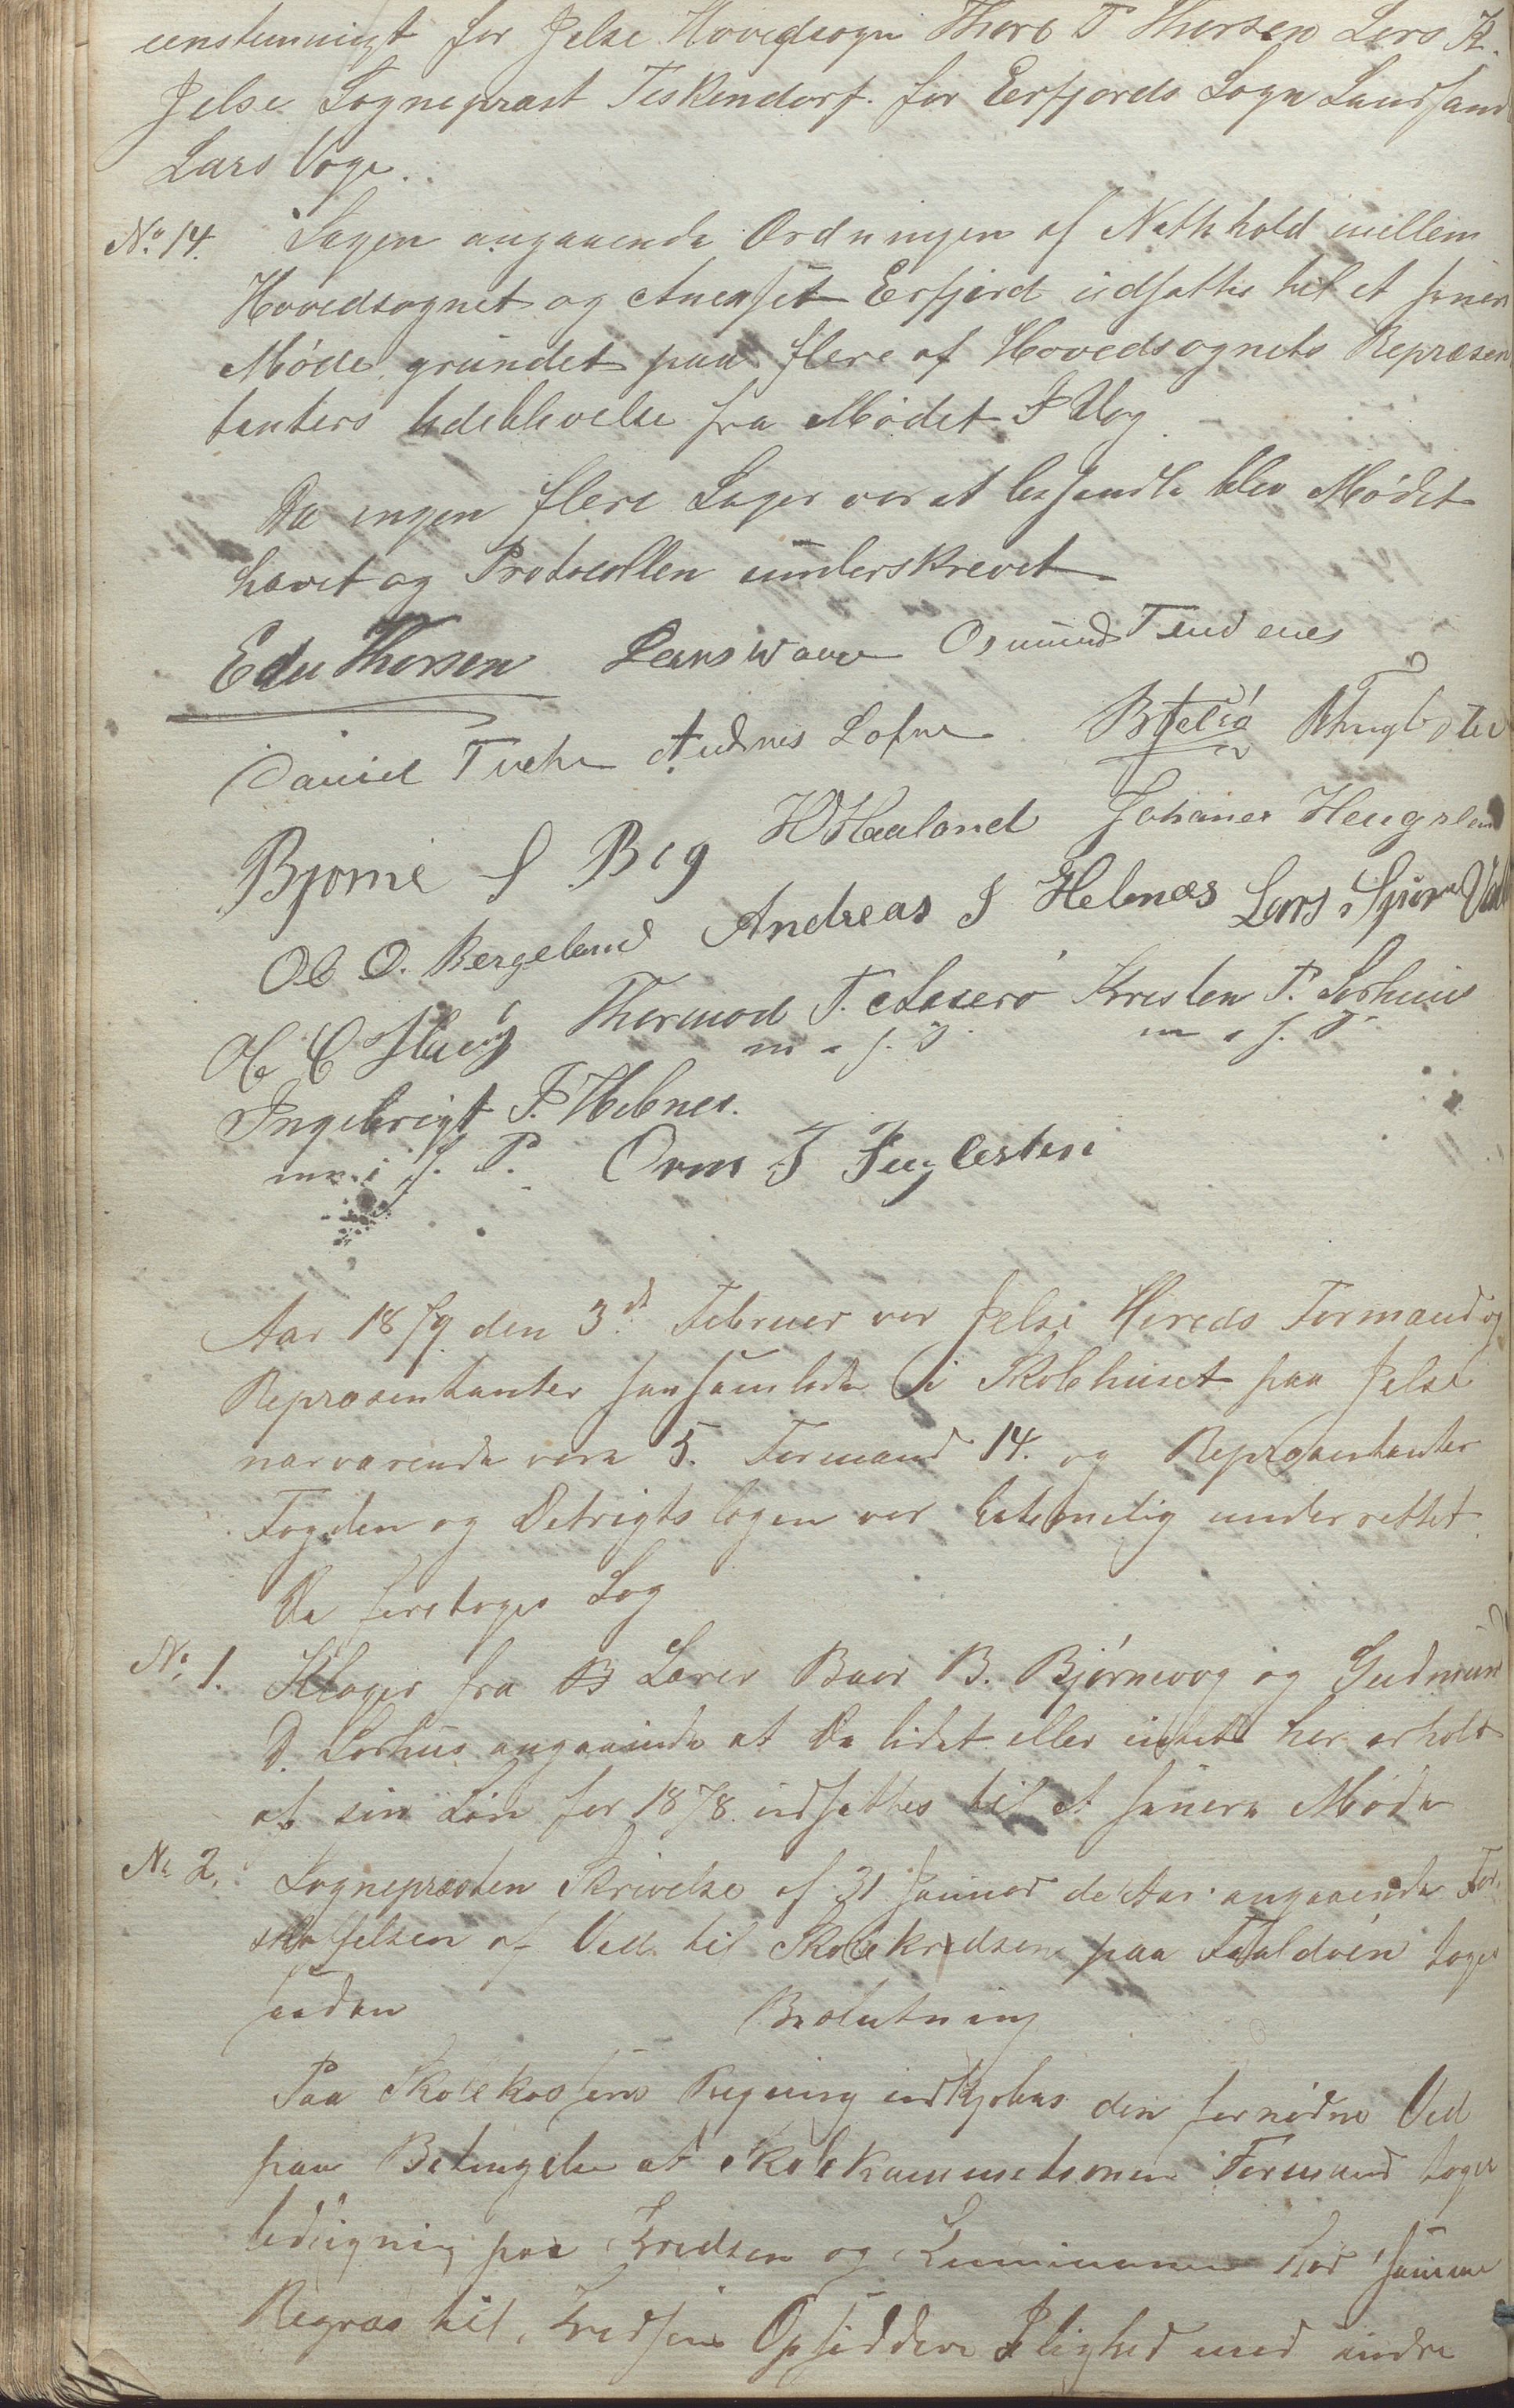 eenstemmigt for Jelse Hovedsogn Thore T Thorsen Lars K.
Jelse Sognepræst Teskendorf. for Eerfjords Sogn
Lars Vage.
No. 14. Sagen angaaende Ordningen af Nathhold mellem
Hovedsognet og Anexset Erfjord udsattes til et senere
Møde grundet paa flere af Hovedsognets Repræsen
tanters Udeblivelse fra Mødet I Dag
Da ingen flere Sager var at behandle blev Mødet
hævet og Protocollen underskrevet
Edu Thorsen Osmund Tendenes
Daniel Tveke Audnes Lofne BJelsa
Bjorne S Big H Haaland Johanes Heugslen
Ole O. Bergeland Andreas J Hebnæs Lars
Thormod T. Kristen P. Sorhuus
m i f. P. m i f. P.
Ingebrigt T. Hebnes.
m i f. P. Orm T Fuglesten
Aar 1879 den 3die Februar var Jelse Hereds Formænd og
Repræsentanter forsamlede i Skolehuset paa Jelse
nærværende vare 5. Formænd 14. og Repræsentanter
Fogden og Detrigtslægen var betimelig underrettet.
Da foretoges Sag
No. 1. Klager fra B Lærer Baar B. Bjørnevog og Gudmun
D. Sorhus angaaende at De lidet eller intet har erholdt
af sin Løn for 1878 udsattes til et senere Møde
No. 2. Sognepræsten Skrivelse af 31 Januar de Aar angaaende For
skaffelsen af Ved til Skolekredsen paa Foldøen toges
saadan
Beslutning
Paa Skolekassens Regning indkjøbes den fornødne Ved
paa Betingelse at Skolekommissionen Formand tager
Udligning paa Kredsen og Kommunen har samme
Regres til Kredsens Opsiddere I lighed med andre